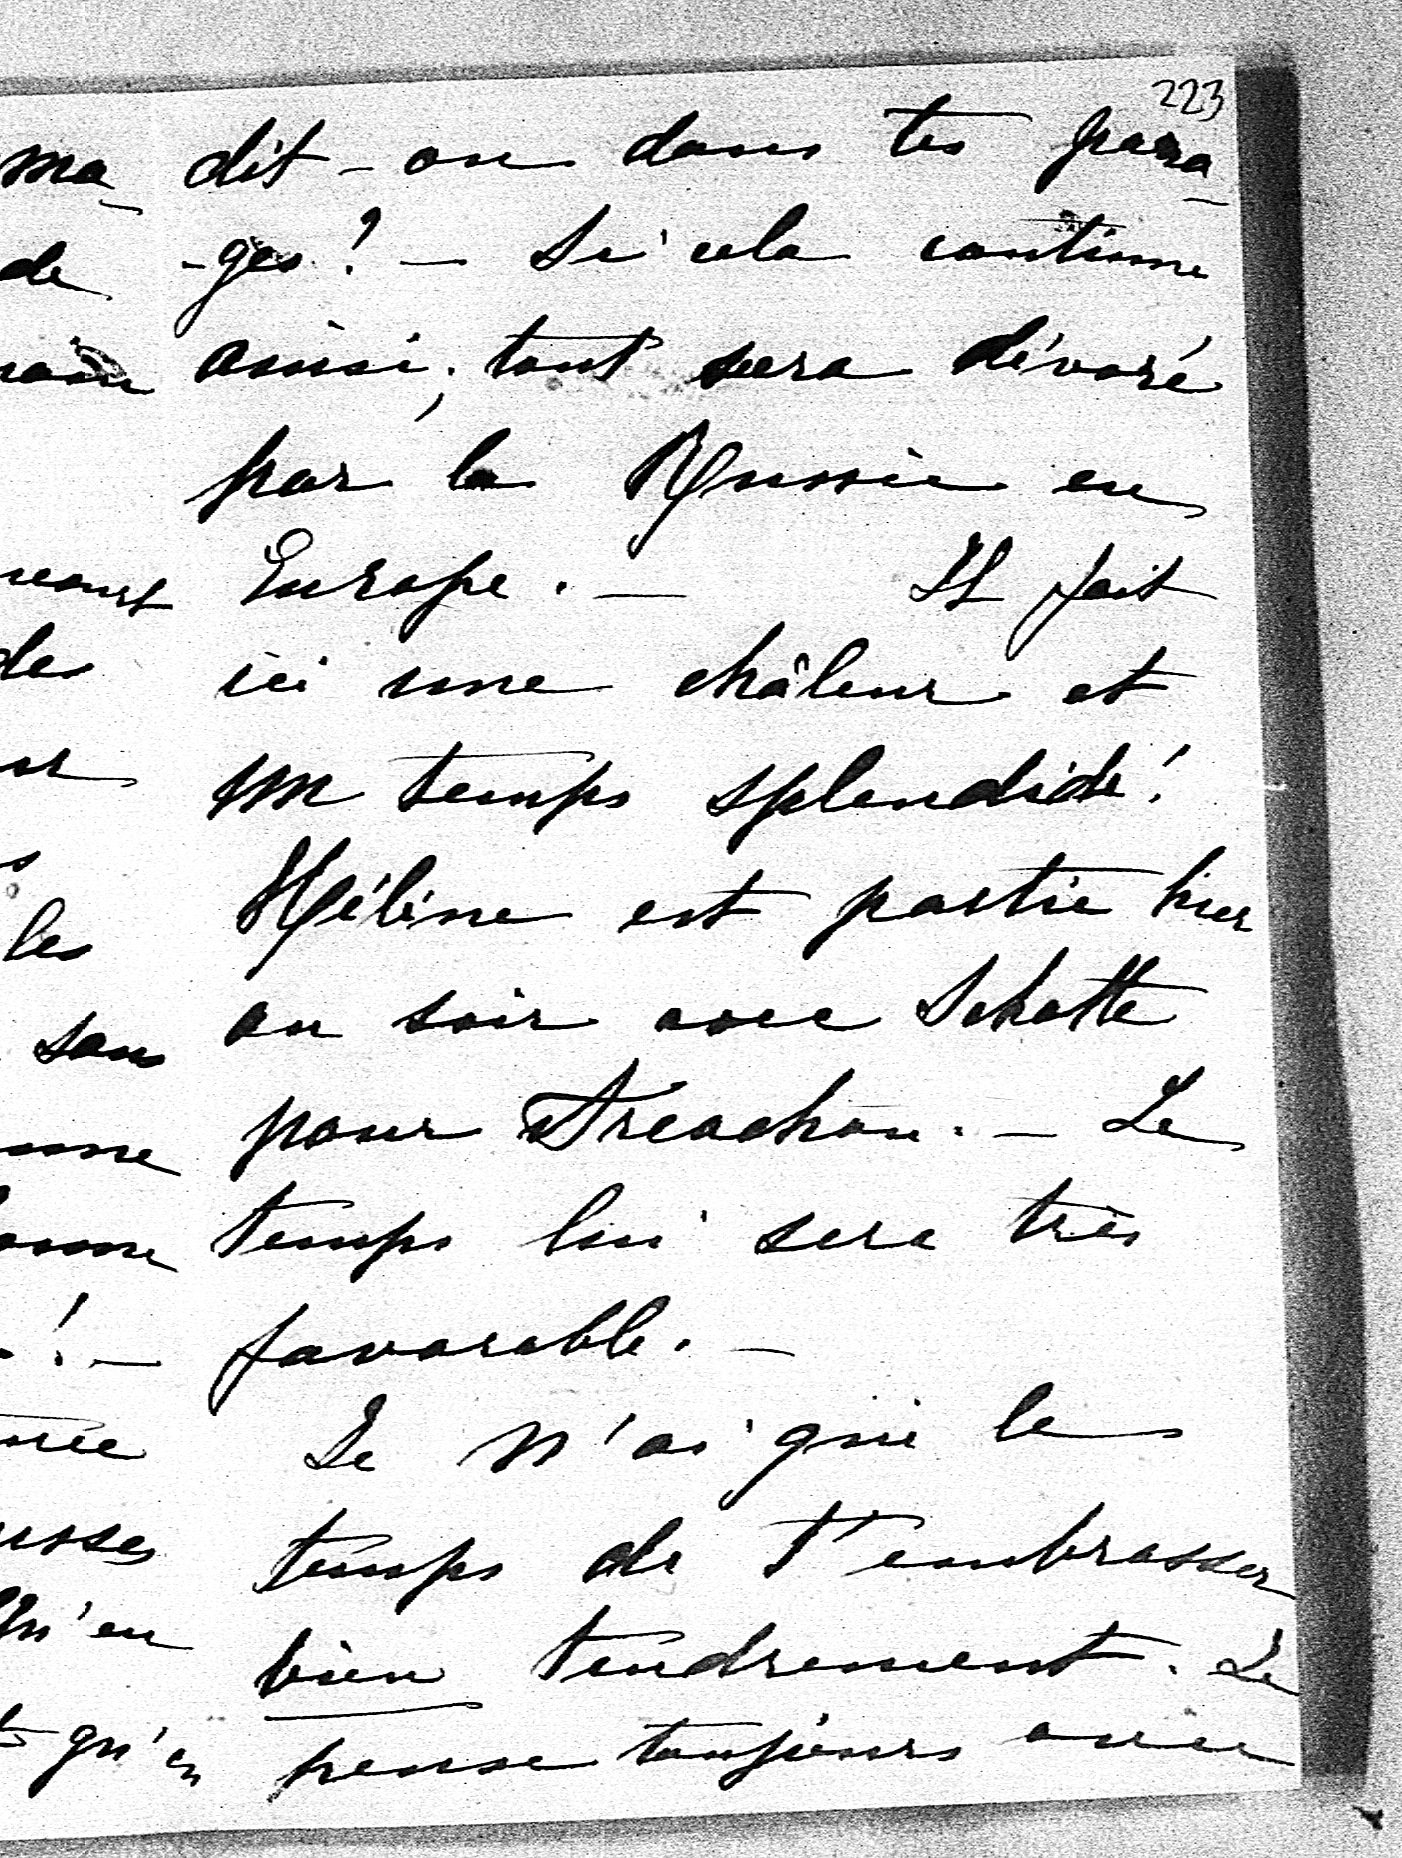 223
ma- dit-on dans tes para-
de -ges? — Si cela continue
ainsi, tout sera dévoré
par la Russie en
Europe. — Il fait
des ici une châleur et
un temps splendide!
Hélène est partie hier
les au soir avec Schatte
sans pour Arcachon. — Le
temps lui sera très
! — favorable. —
Je n'ai que le
temps de t'embrasser
qu'en bien tendrement. Je
qu'en pense toujours avec